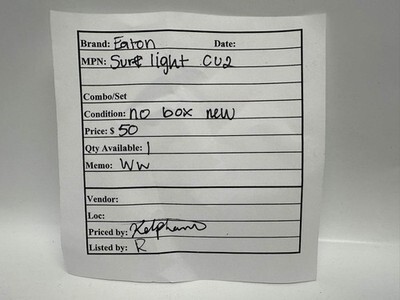 Brand: Eaton Date:
MPN: Sure light CU2
Combo/Set
Condition: no box new
Price: $ 50
Qty Available: 1
Memo: WW
Vendor:
Loc:
Priced by:
Listed by: R